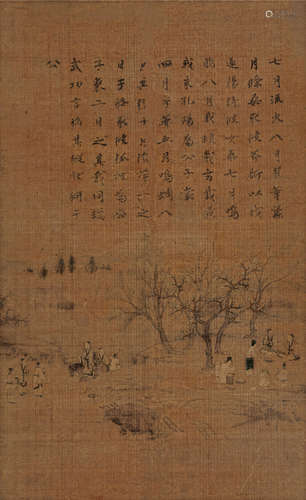 七月流火八月萑葦蠶
月條桑取彼斧斨以伐
遠揚猗彼女桑七月鳴
鵙八月載績載玄載
黃我朱孔陽為公子裳
四月秀葽五月鳴蜩八
月其穫十月隕蘀一之
日于貉取彼狐狸為公
子裘二之日其同載纘
武功言私其豵獻豣于
公